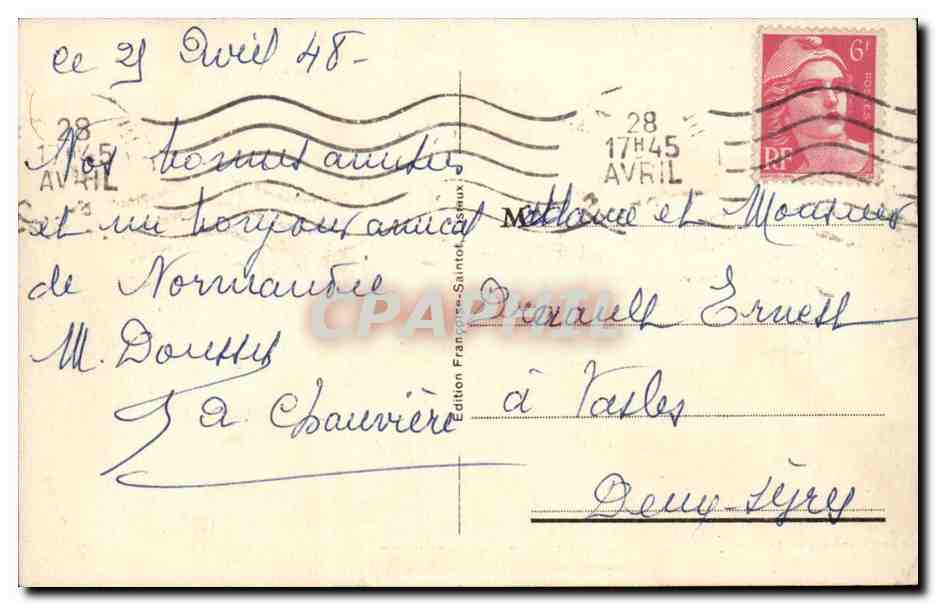 Le 25 Avril 48-
Nos bonnes amitiés
et un bonjour amical
de Normandie
M. Doussit
à Chauvière
28
17H45
AVRIL
28
17H45
AVRIL
6F
RF
Edition Françoise-Saintot, Lisieux
Madame et Monsieur
Drault Ernest
à Vasles
Deux-Sèvres
CPAPHIL